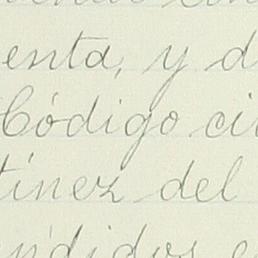 enta, y d
Código ci
tínez del
ndidos e